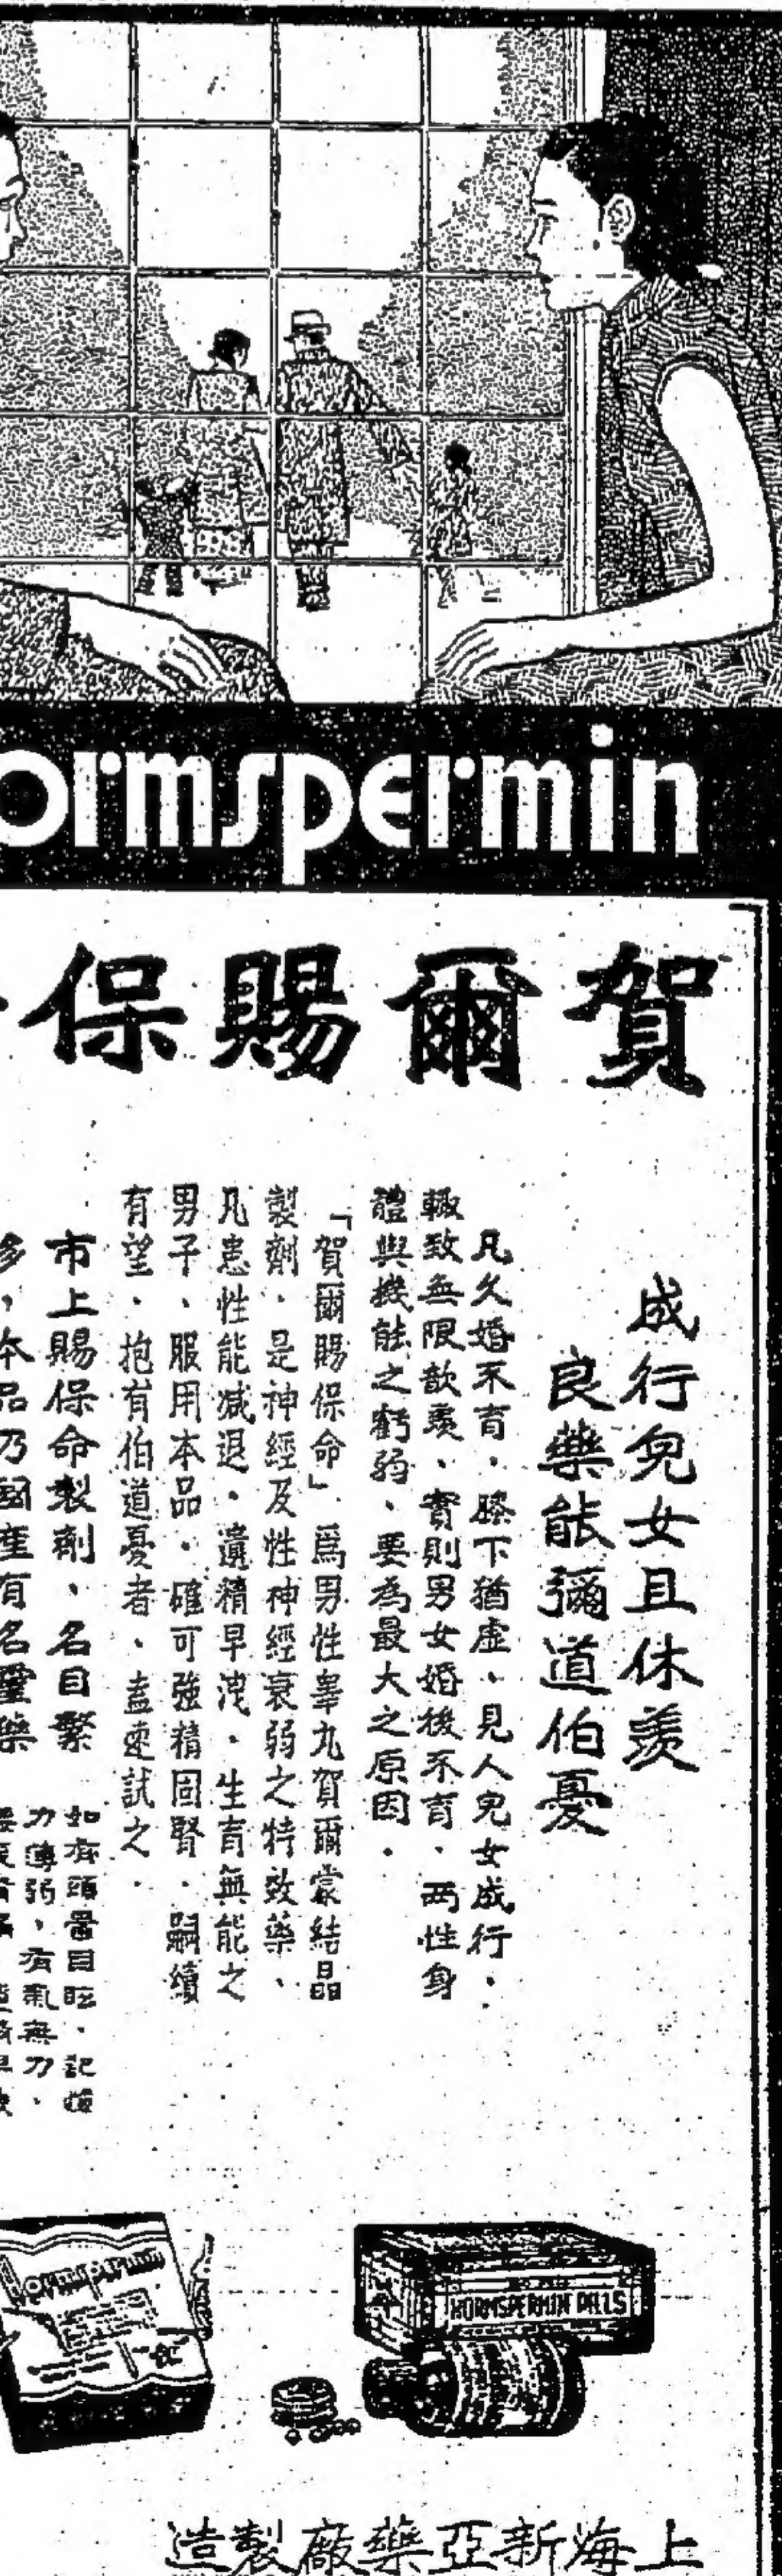 ormspermin
賀爾賜保
成行兒女且休羨
良藥能彌道伯憂
凡久婚不育．膝下猶虛、見人兒女成行．
輙致無限歆羨、實則男女婚後不育．兩性身
體與機能之虧弱、要為最大之原因．
「賀爾賜保命」爲男性睾丸賀爾蒙結晶
製劑．是神經及性神經衰弱之特效藥、
凡患性能減退．遺精早洩．生育無能之
男子、服用本品．確可強精固腎．嗣續
有望．抱有伯道憂者、盍速試之．
市上賜保命製劑、名目繁
多，本品乃國產有名靈藥
如有頭暈目眩．記憶
力薄弱，有氣無力．
Hormspermin
HORMSPERMIN PILLS
上海新亞藥廠製造